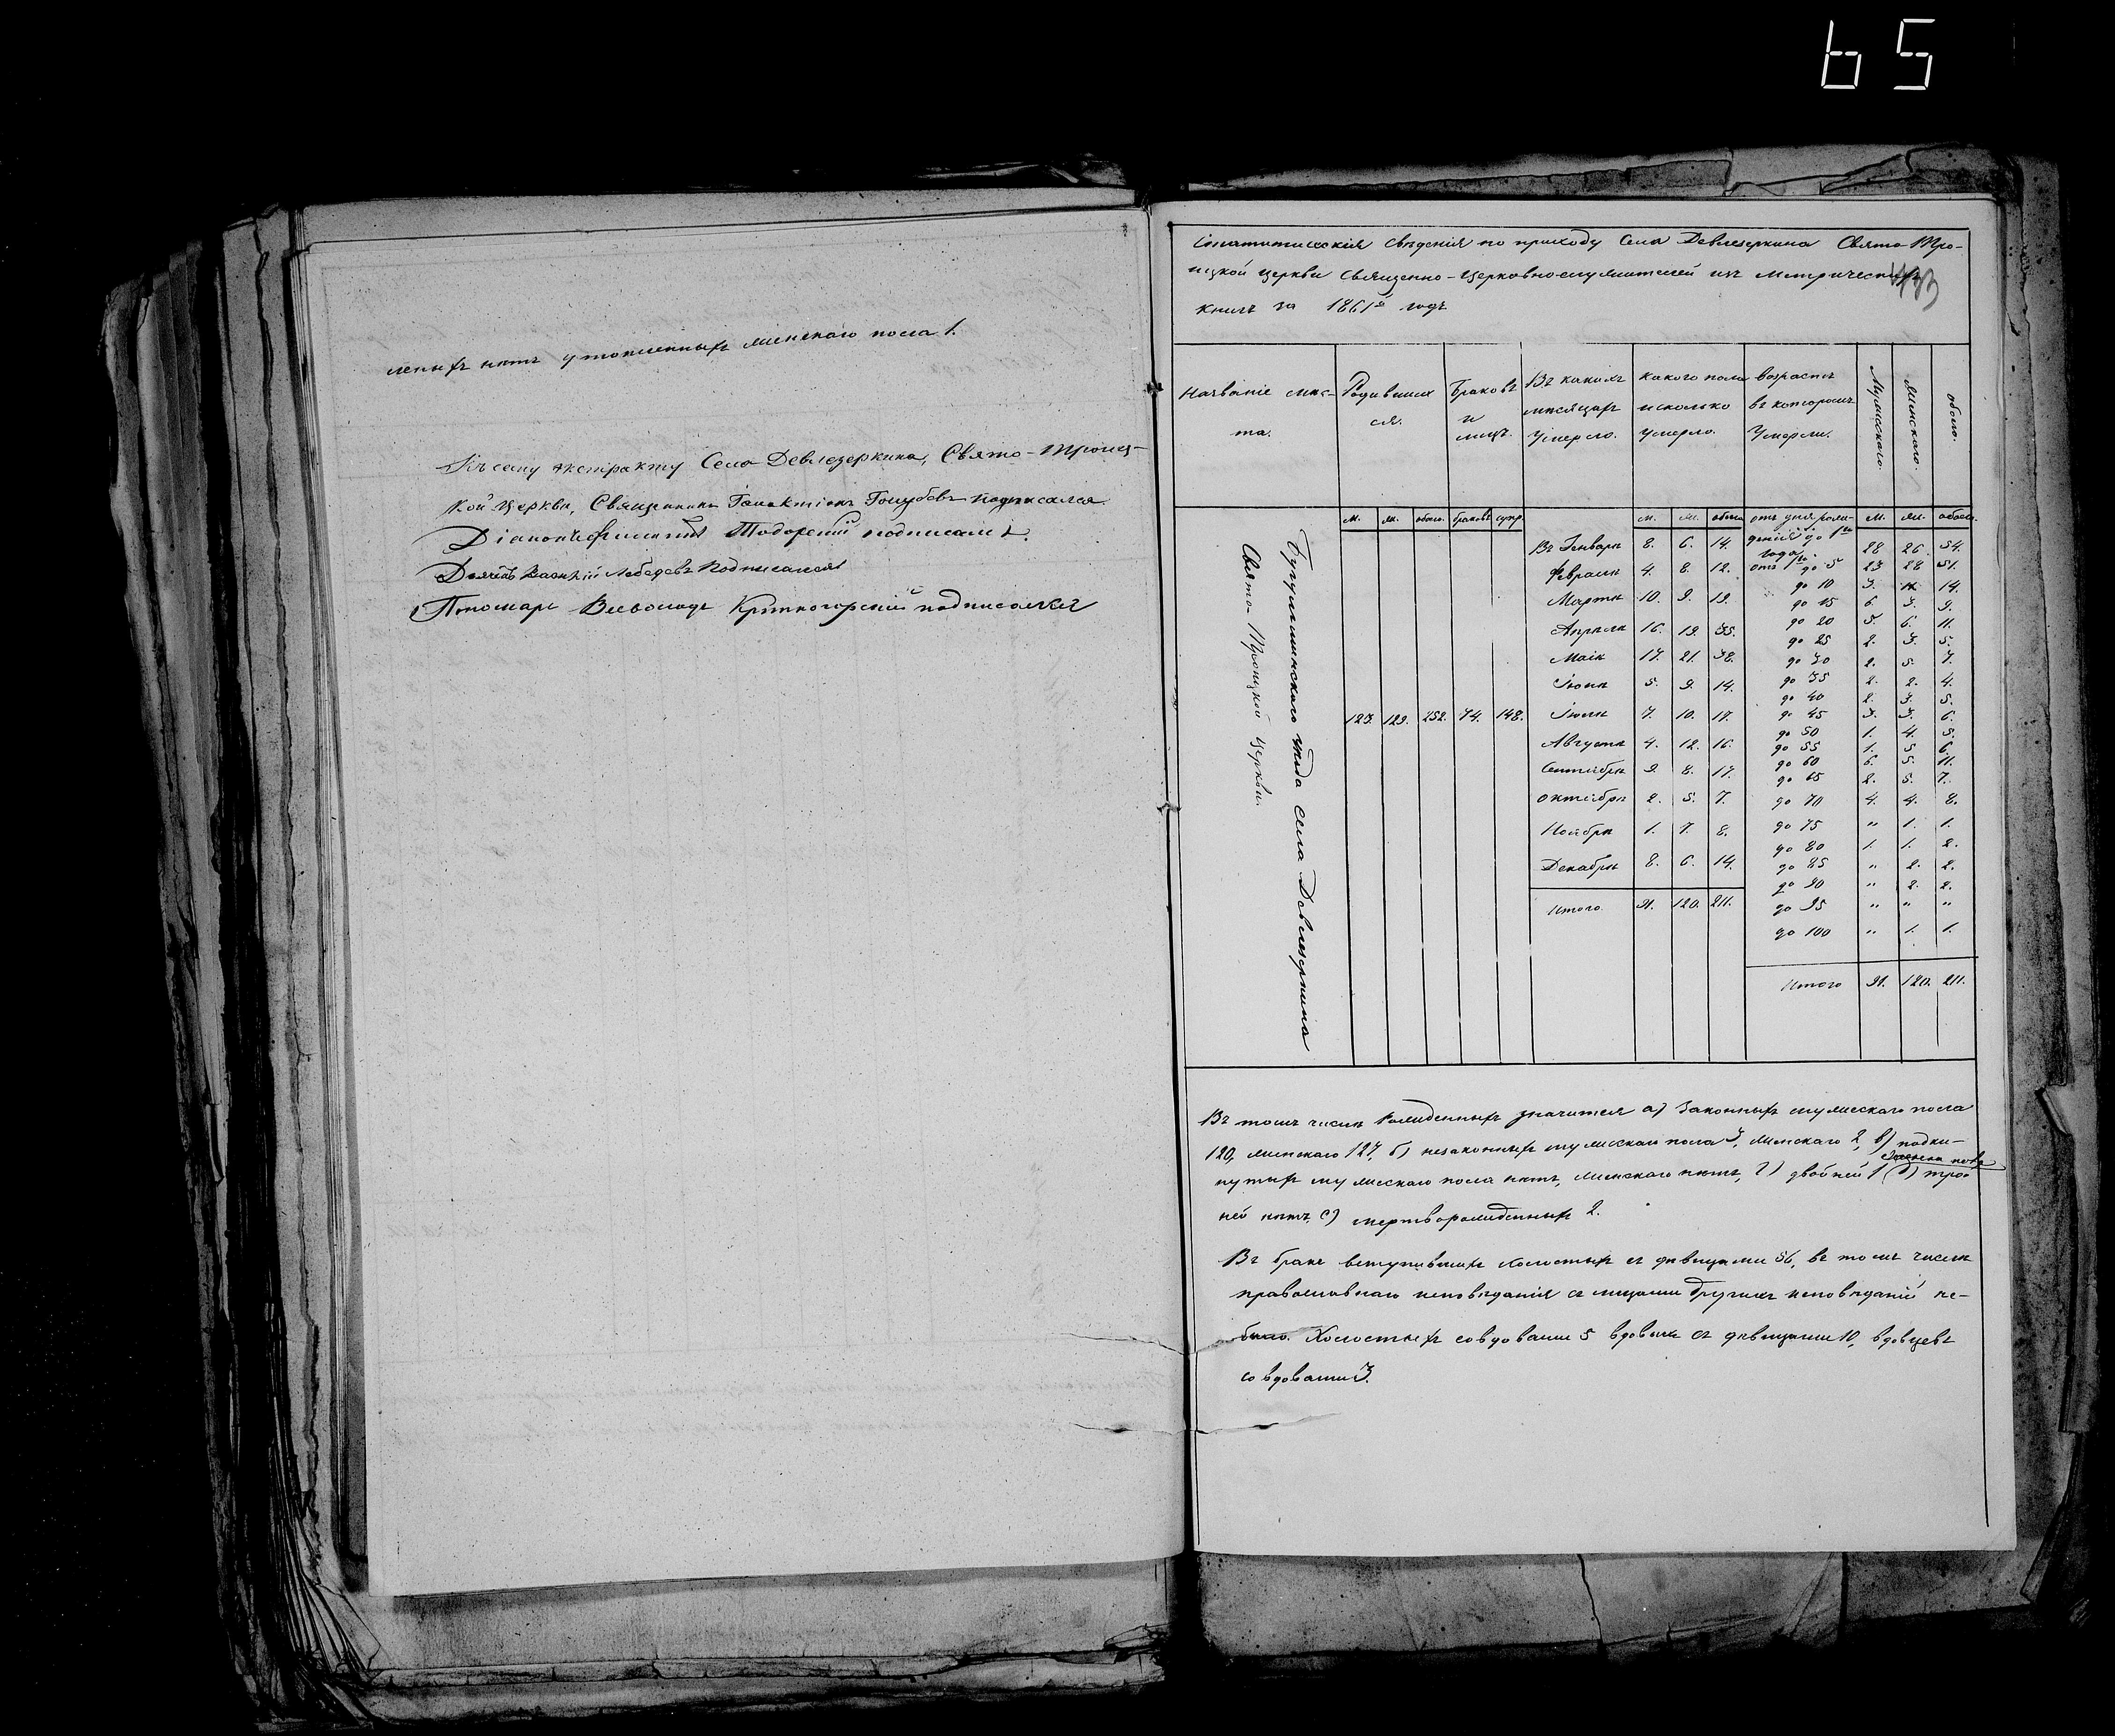 65
леныхъ нѣтъ утопленныхъ женскаго пола 1.
Къ сему экстракту Села Девлезеркина, Свято-Троиц-
кой Церкви, Священникъ Галактіонъ Голубевъ подписался
Діаконъ Тодорскій подписался
Дьячекъ Василій Лебедевъ подписался
Пономарь Всеволодъ Крѣпкогорскій подписался
Статистическія свѣденія по приходу Села Девлезеркина Свято Тро-
ицкой церкви Священно-Церковнослужителей изъ Метрическихъ
433
книгъ за 1861й годъ
Названіе мѣс-
та.
Родивших
ся.
Браковъ
и
лицъ.
Въ какихъ
мѣсяцахъ
Умерло.
Какого пола
и сколько
умерло.
Возрастъ
въ которомъ
Умерли.
Мужескаго.
Женскаго.
обоего.
м. ж. обоего. браковъ супр.
м. ж. обоего отъ дня рож- м. ж. обоего.
Бугульминскаго уѣзда села Девлезеркина
Свято-Троицкой церкви.
123. 129. 252. 74. 148.
Въ Генварѣ 8. 6. 14.
Февралѣ 4. 8. 12.
Мартѣ 10. 9. 19.
Апрѣлѣ 16. 19. 35.
Маіѣ 17. 21. 38.
Іюнѣ 5. 9. 14.
Іюлѣ 7. 10. 17.
Августѣ 4. 12. 16.
Сентябрѣ 9. 8. 17.
Октябрѣ 2. 5. 7.
Ноябрѣ 1. 7. 8.
Декабрѣ 8. 6. 14.
Итого 91. 120. 211.
денія до 1го
года 28 26. 54.
отъ 1го до 5 23 28 51.
до 10 3. 11. 14.
до 15 6. 3. 9.
до 20 5. 6. 11.
до 25 2. 3. 5.
до 30 2. 5. 7.
до 35 2. 2. 4.
до 40 2. 3. 5.
до 45 3. 3. 6.
до 50 1. 4. 5.
до 55 1. 5 6.
до 60 6. 5. 11.
до 65 2. 5. 7.
до 70 4. 4. 8.
до 75 " 1. 1.
до 80 1. 1. 2.
до 85 " 2. 2.
до 90 " 2. 2.
до 95 " " "
до 100 " 1. 1.
Итого 91. 120. 211.
Въ томъ числѣ Рожденныхъ значится а) законныхъ мужескаго пола
120, женскаго 127, б) незаконныхъ мужескаго пола 3, женскаго 2, в) подки-
нутыхъ мужескаго пола нѣтъ, женскаго нѣтъ, г) двойней 1 д) трой
ней нѣтъ, е) мертворожденныхъ 2.
Въ бракъ вступившихъ Холостыхъ съ дѣвицами 56, въ томъ числѣ
православнаго исповѣданія съ лицами другихъ исповѣданій не-
было. Холостыхъ со вдовами 5 вдовыхъ съ дѣвицами 10, вдовцевъ
со вдовами 3.